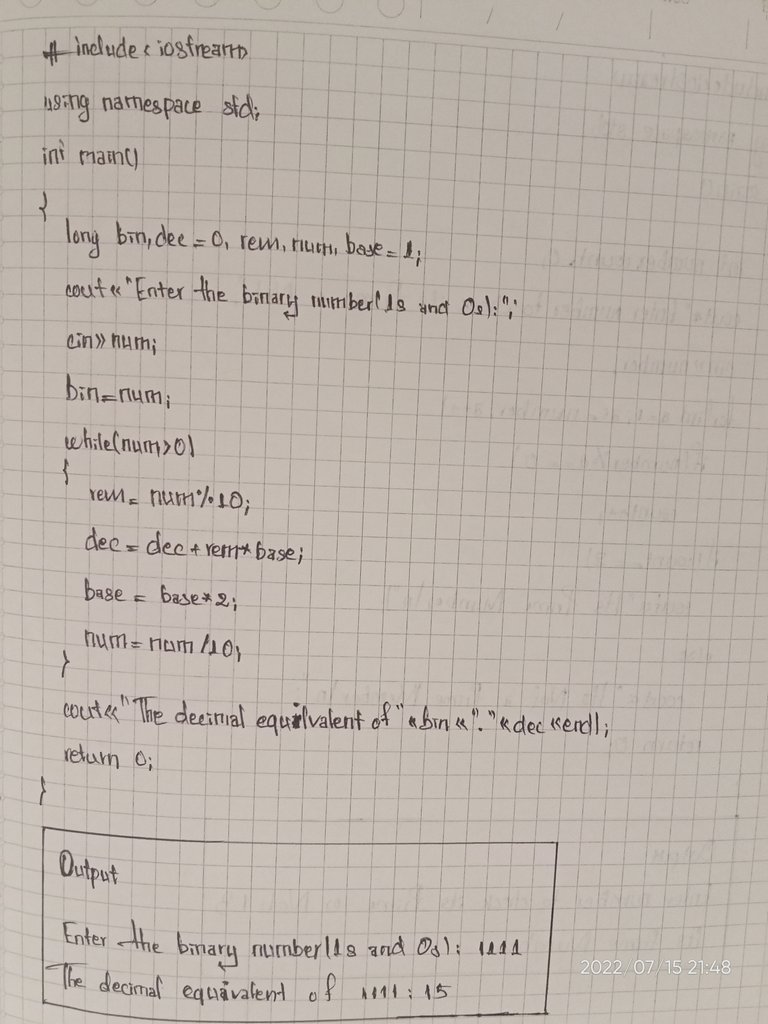 # include<iostream>
using namespace std;
int main()
{
long bin, dec = 0, rem, num, base = 1;
cout<<"Enter the binary number(1s and 0s):";
cin>>num;
bin=num;
while(num>0)
{
rem= num%10;
dec= dec+rem*base;
base = base*2;
num=num/10;
}
cout<<"The decimal equilvalent of"<<bin<<":"<<dec<<endl;
return 0;
}
Output
Enter the binary number(1s and 0s): 1111
The decimal equivalent of 1111:15
2022/07/15 21:48